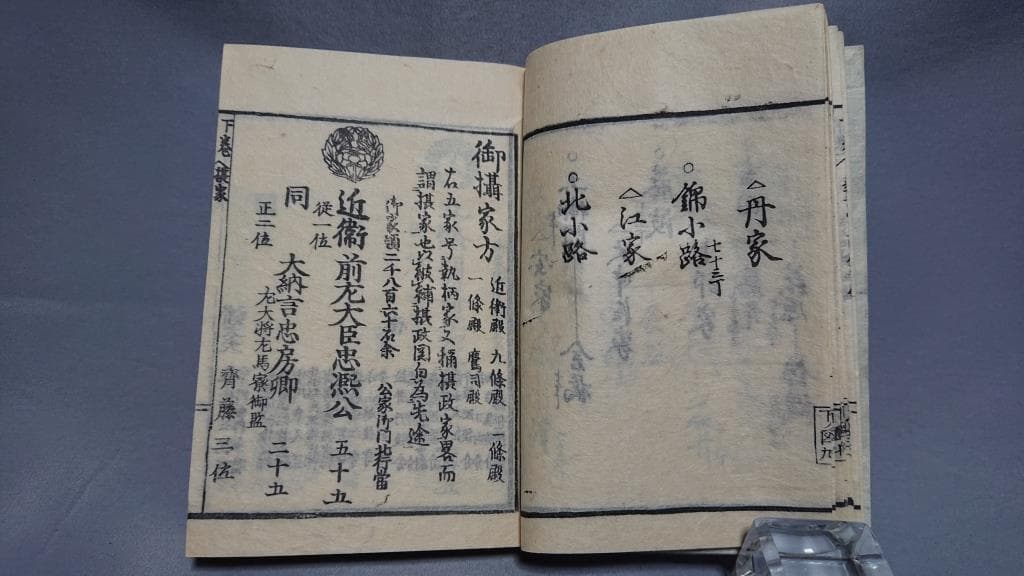 △丹家
○錦小路 七十三丁
△江家
○北小路
御攝家方
近衛殿 九條殿 一條殿
一條殿 鷹司殿
右五家号執柄家又稱摂政家畧而
謂摂家也以被補摂政関白為先途
御家領二千八百六十石余
公家御門
近衛前左大臣忠凞公 五十九
従一位
同 大納言忠房卿 二十五
正二位
左大将左馬寮御監
齊藤三位
下巻
摂家